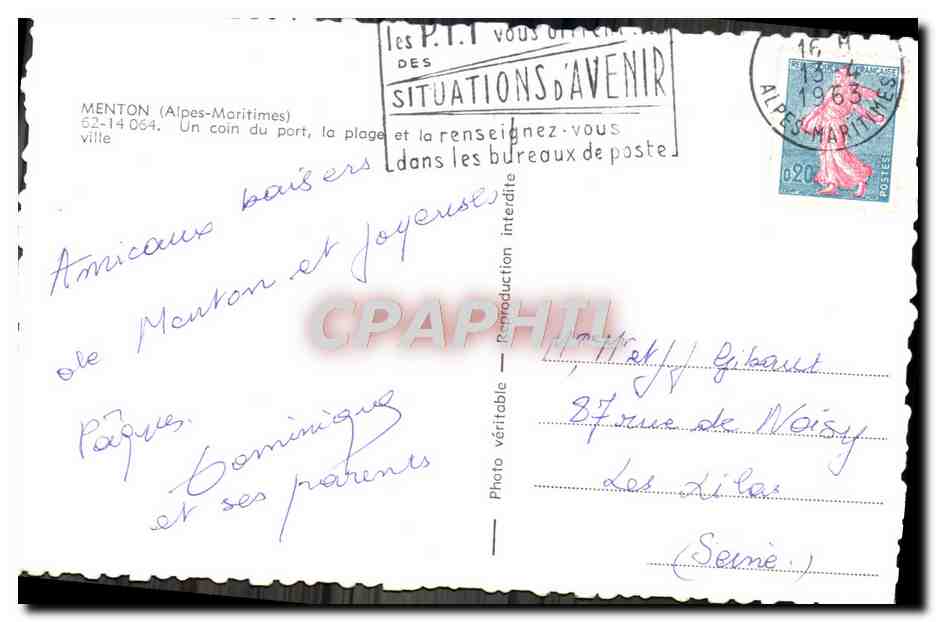 MENTON (Alpes-Maritimes)
62-14 064. Un coin du port, la plage et la
ville
les P.T.T vous offrent
DES
SITUATIONS D'AVENIR
renseignez-vous
dans les bureaux de poste
16 H
13-4
1963
ALPES-MARITIMES
FRANÇAISE
0,20
POSTES
Amicaux baisers
de Menton et Joyeuses
Pâques.
Dominique
et ses parents
Photo véritable — Reproduction interdite
CPAPHIL
et J J Gibaut
87 rue de Noisy
Les Lilas
(Seine.)